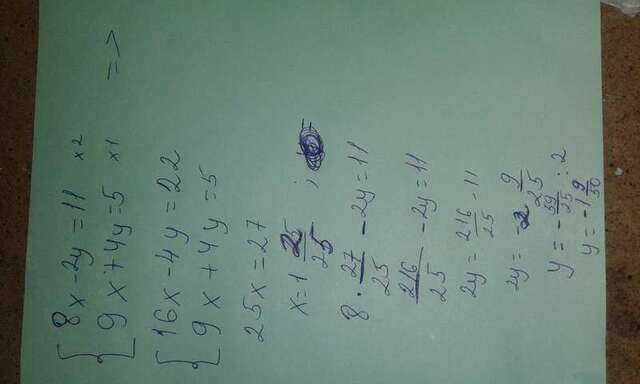 8x - 2y = 11 x2
9x + 4y = 5 x1 =>
16x - 4y = 22
9x + 4y = 5
25x = 27
x = 1 2/25 ;
8 · 27/25 - 2y = 11
216/25 - 2y = 11
2y = 216/25 - 11
2y = -2 9/25
y = - 59/25 : 2
y = -1 9/50